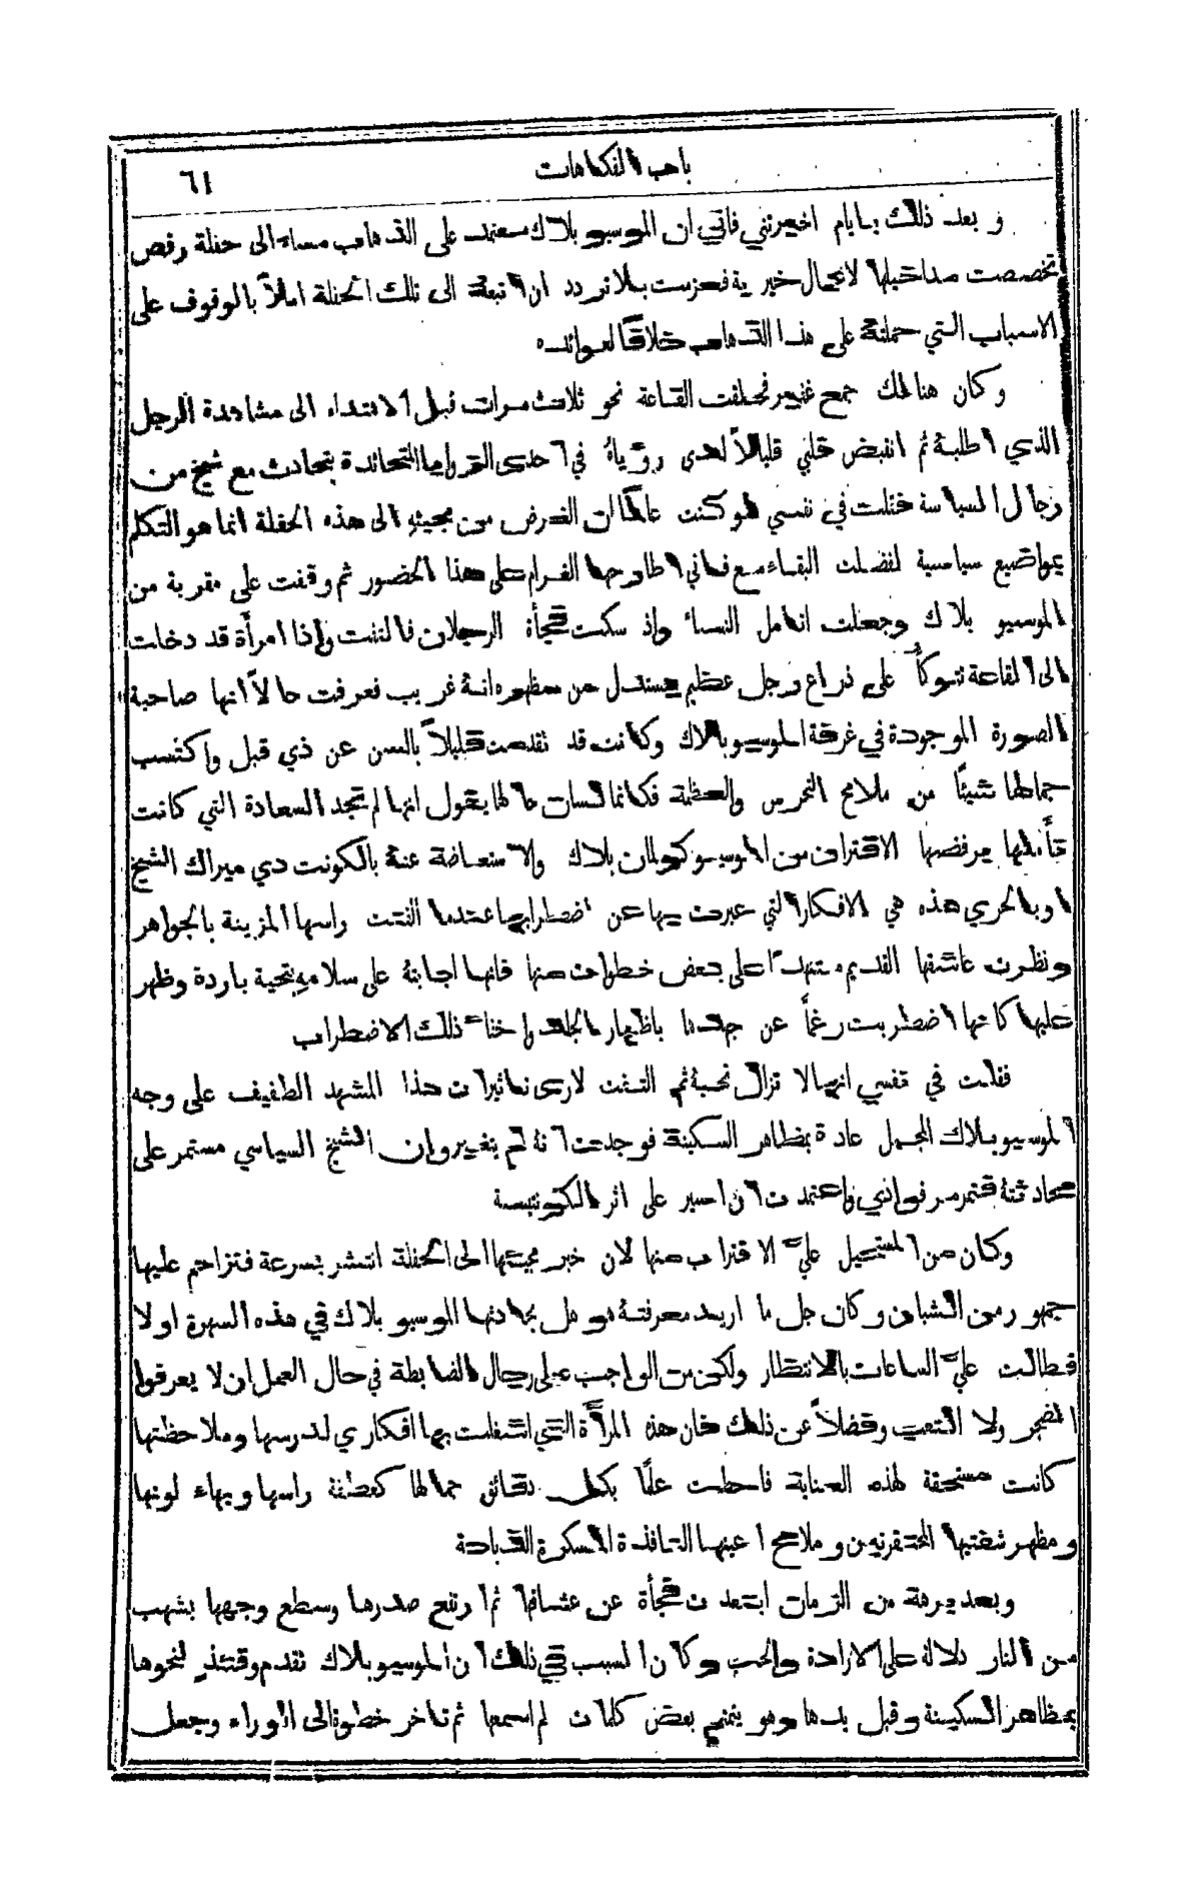 باب الفكاهات
٦١
وبعد ذلك بايام اخبرتني فاني ان الموسيو بلاك معتمد على الذهاب مساء الى حفلة رقص
تخصصت مداخيلها لاعمال خيرية فعزمت بلا تردد ان اتبعة الى تلك الحفلة املاً بالوقوف على
الاسباب التي حملتة على هذا الذهاب خلافًا لعوائده
وكان هنالك جمع غفير فطفت القاعة نحو ثلاث مرات قبل الاهتداء الى مشاهدة الرجل
الذي اطلبة ثم انقبض قلبي قليلاً لدى رؤياهُ في احدى الزوايا يتحادث مع شيخ من
رجال السياسة فقلت في نفسي لو كنت عالمًا ان الغرض من مجيئهِ الى هذه الحفلة انما هو التكلم
بمواضيع سياسية لفضلت البقاء مع فاني اطارحها الغرام على هذا الحضور ثم وقفت على مقربة من
الموسيو بلاك وجعلت اتامل النساء واذ سكت فجأة الرجلان فالتفت واذا امرأة قد دخلت
الى القاعة تتوكأُ على ذراع رجل عظيم يستدل من مظهره انة غريب فعرفت حالاً انها صاحبة
الصورة الموجودة في غرفة الموسيو بلاك وكانت قد تقدمت قليلاً بالسن عن ذي قبل واكتسب
جمالها شيئًا من ملامح التمرس والعظمة فكانما لسان حالها يقول انها لم تجد السعادة التي كانت
تأملها برفضها الاقتران من الموسيو كولمان بلاك والاستعاضة عنة بالكونت دي ميراك الشيخ
او بالحري هذه هي الافكار التي عبرت بها عن اضطرابها عندما التفت راسها المزينة بالجواهر
ونظرت عاشقها القديم متنهدًا على بعض خطوات منها فانها اجابتة على سلامهِ بتحية باردة وظهر
عليها كانها اضطربت رغمًا عن جهدها باظهار الجلد واخفاء ذلك الاضطراب
فقلت في نفسي انها لا تزال تحبة ثم التفت لارى تاثيرات هذا المشهد الطفيف على وجه
الموسيو بلاك المجمل عادة بمظاهر السكينة فوجدت انة لم يتغير وان الشيخ السياسي مستمر على
محادثتة فتمرمر فوادي واعتمدت ان اسير على اثر الكونتيسة
وكان من المستحيل عليَّ الاقتراب منها لان خبر مجيئها الى الحفلة انتشر بسرعة فتزاحم عليها
جمهور من الشبان وكان جل ما اريد معرفتة هو هل يحادثها الموسيو بلاك في هذه السهرة او لا
فطالت عليَّ الساعات بالانتظار ولكن من الواجب على رجال الضابطة في حال العمل ان لا يعرفوا
الضجر ولا التعب وفضلاً عن ذلك فان هذه المرأَة التي اشتغلت بها افكاري لدرسها وملاحظتها
كانت مستحقة لهذه العناية فاحطت علمًا بكل دقائق جمالها كعطفة راسها وبهاء لونها
ومظهر شفتيها المحتقرتين وملامح اعينها النافذة المسكرة الذباحة
وبعد برهة من الزمان ابتعدت فجأة عن عشاقها ثم ارتفع صدرها وسطع وجهها بشهب
من النار دلالة على الارادة والحب وكان السبب في ذلك ان الموسيو بلاك تقدم وقتئذٍ نحوها
بمظاهر السكينة وقبل يدها وهو يتمتم بعض كلمات لم اسمعها ثم تاخر خطوة الى الوراء وجعل